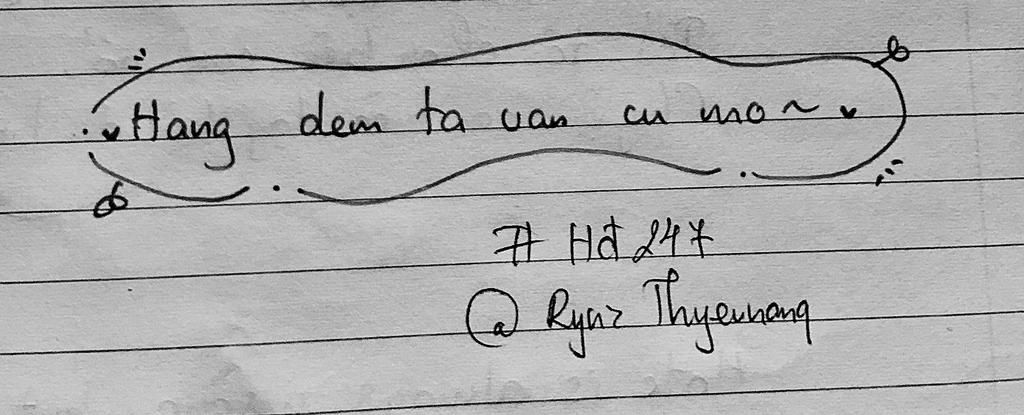 Hang dem ta van cu mo ~
# Hđ 247
@ Rynz Thyeunang